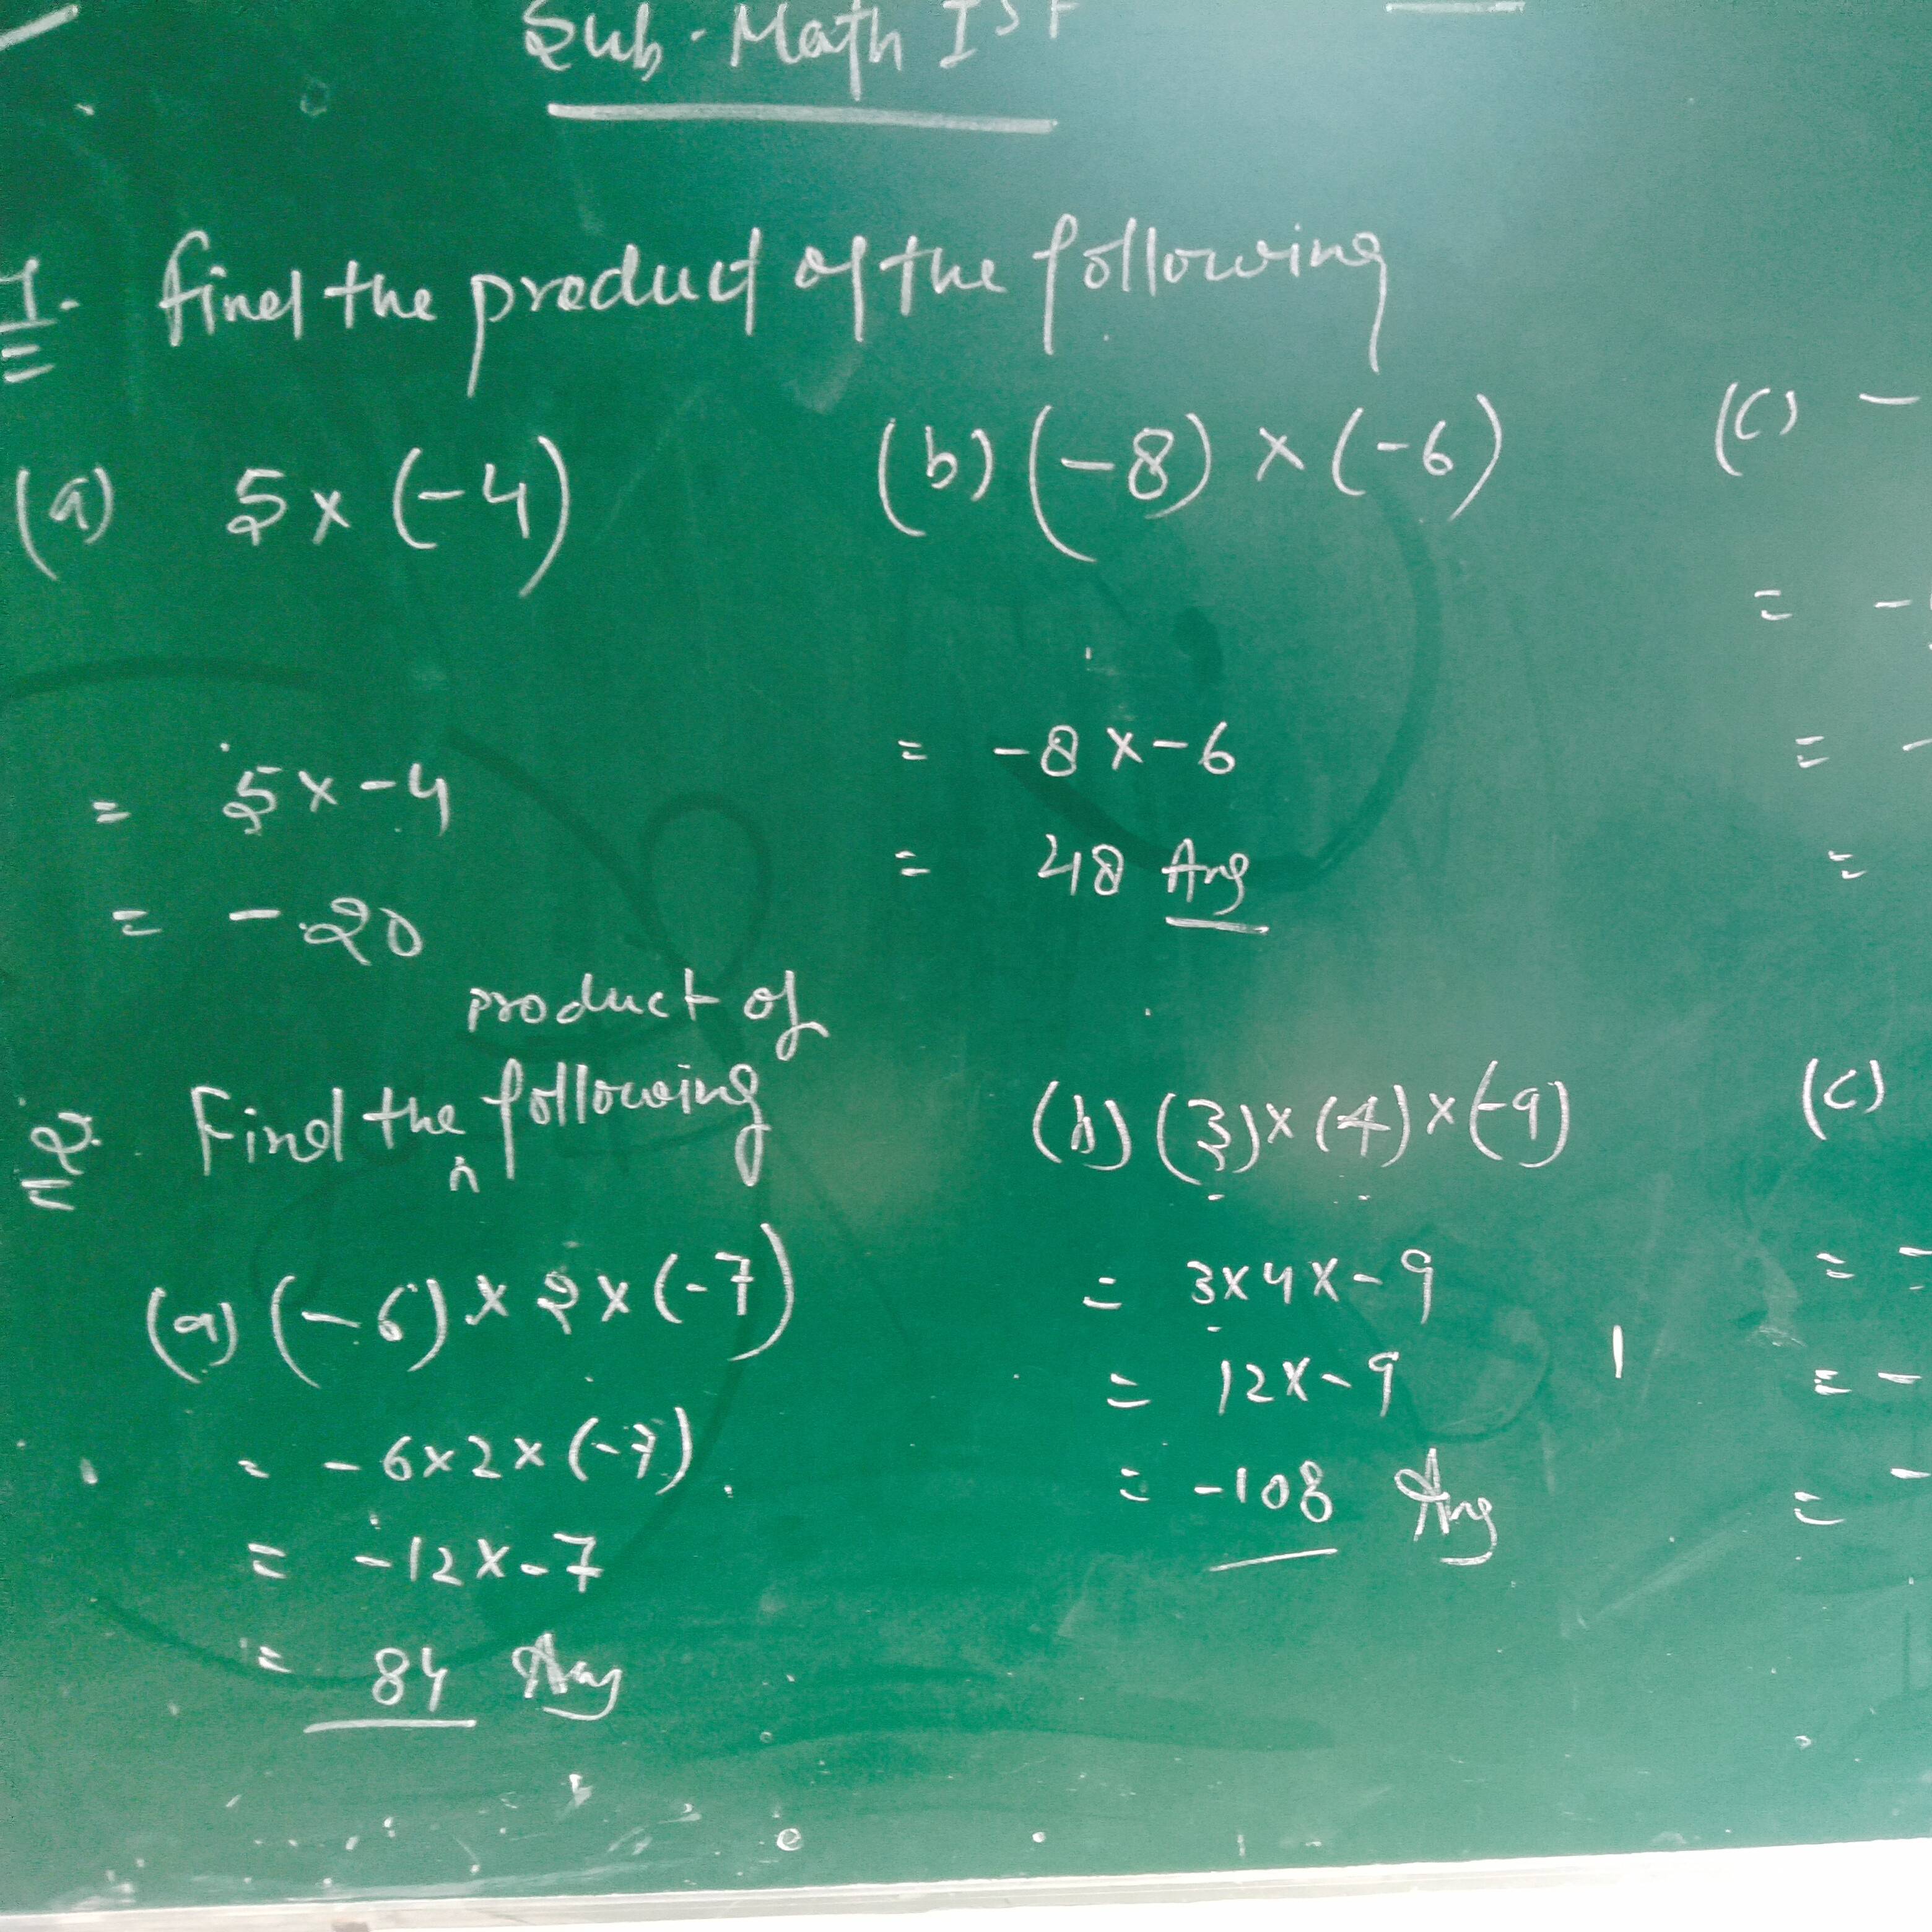 Sub. Math Ist
1. find the product of the following
(a) 5 x (-4)
= 5 x -4
= -20
(b) (-8) x (-6)
= -8 x -6
= 48 Ans
(c) -
= -
= -
=
2. Find the product of following
(a) (-6) x 2 x (-7)
= -6 x 2 x (-7)
= -12 x -7
= 84 Ans
(b) (3) x (4) x (-9)
= 3 x 4 x -9
= 12 x -9
= -108 Ans
(c)
= -
= -
= -